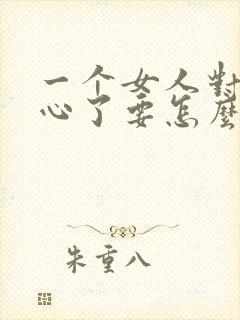 一个女人對
心了要怎麼
朱重八